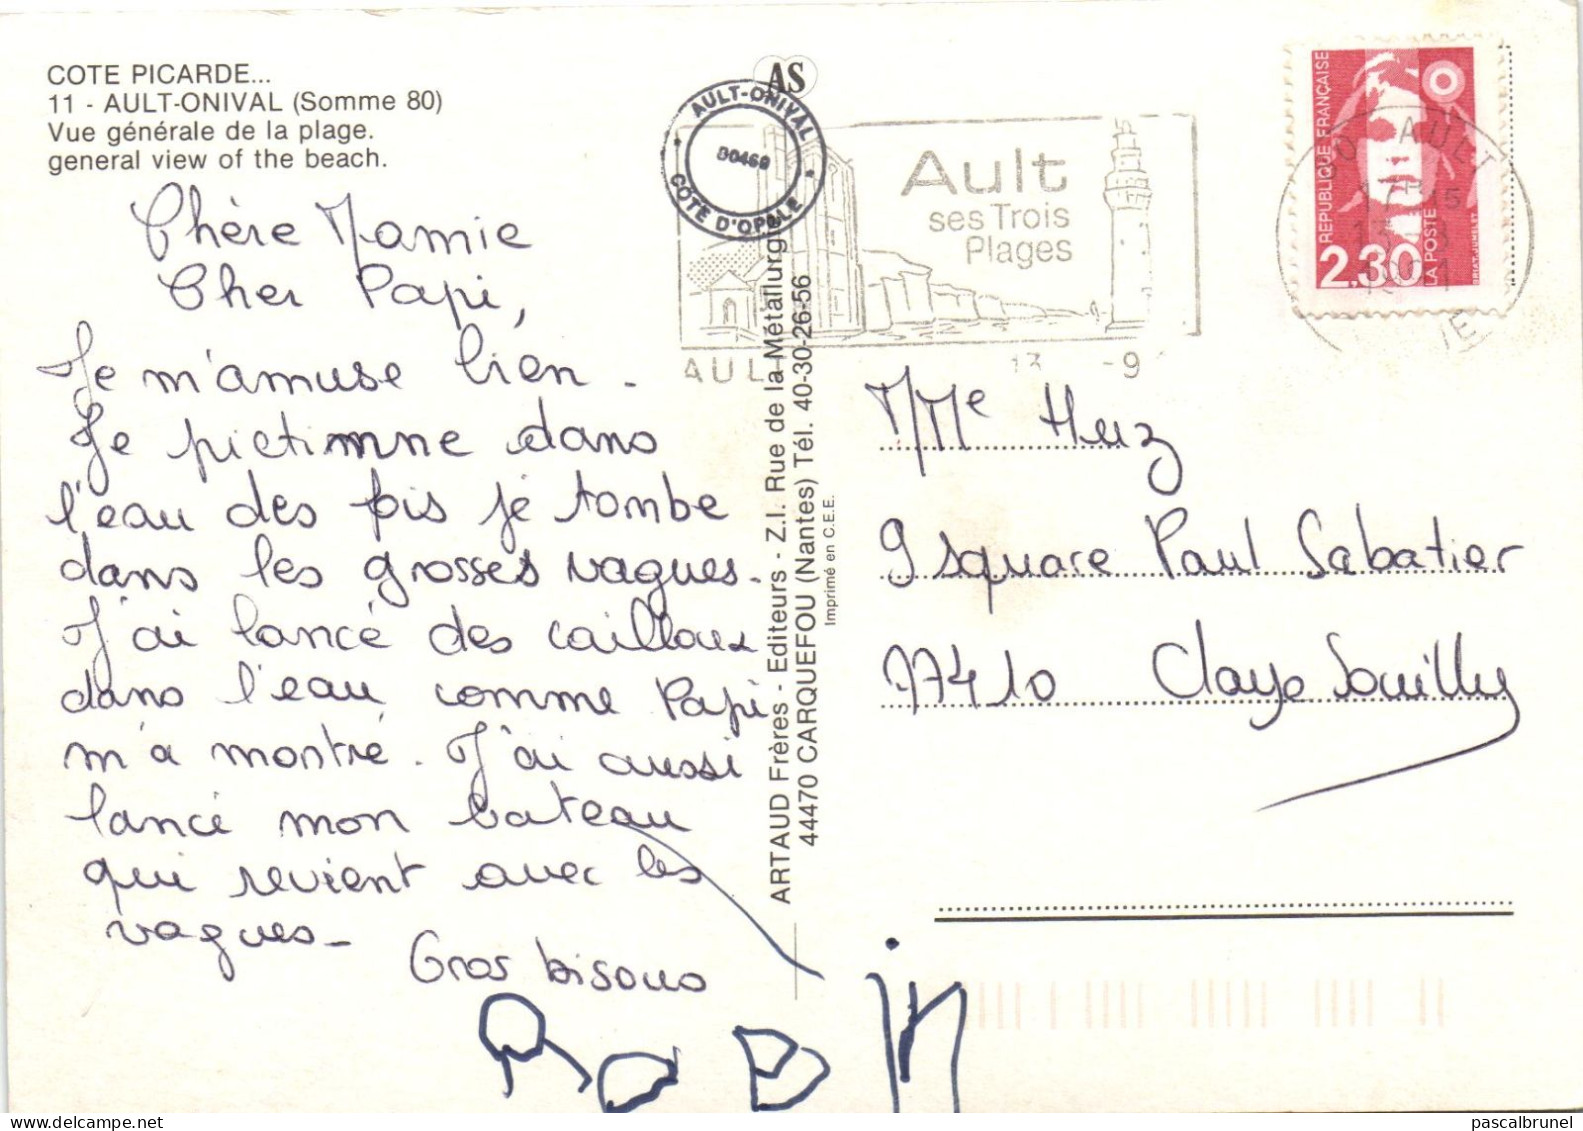 COTE PICARDE...
11 - AULT-ONIVAL (Somme 80)
Vue générale de la plage.
general view of the beach.
Chère Mamie
Cher Papi,
Je m'amuse bien.
Je pictimne dans
l'eau des fois je tombe
dans les grosses vagues.
J'ai lancé des cailloux
dans l'eau comme Papi
m'a montré. J'ai aussi
lancé mon bateau
qui revient avec les
vagues.
Gros bisous
RObiN
AS
AULT-ONIVAL
80460
CÔTE D'OPALE
ARTAUD Frères - Editeurs - Z.I. Rue de la Métallurgie
44470 CARQUEFOU (Nantes) Tél. 40-30-26-56
Imprimé en C.E.E.
Ault
ses Trois
Plages
AUL
13 -9
RÉPUBLIQUE FRANÇAISE
2,30
LA POSTE
BRIAT-JUMELET
80 AULT
17H15
Mme Huz
9 square Paul Sabatier
77410 Claye Souilly
pascalbrunel